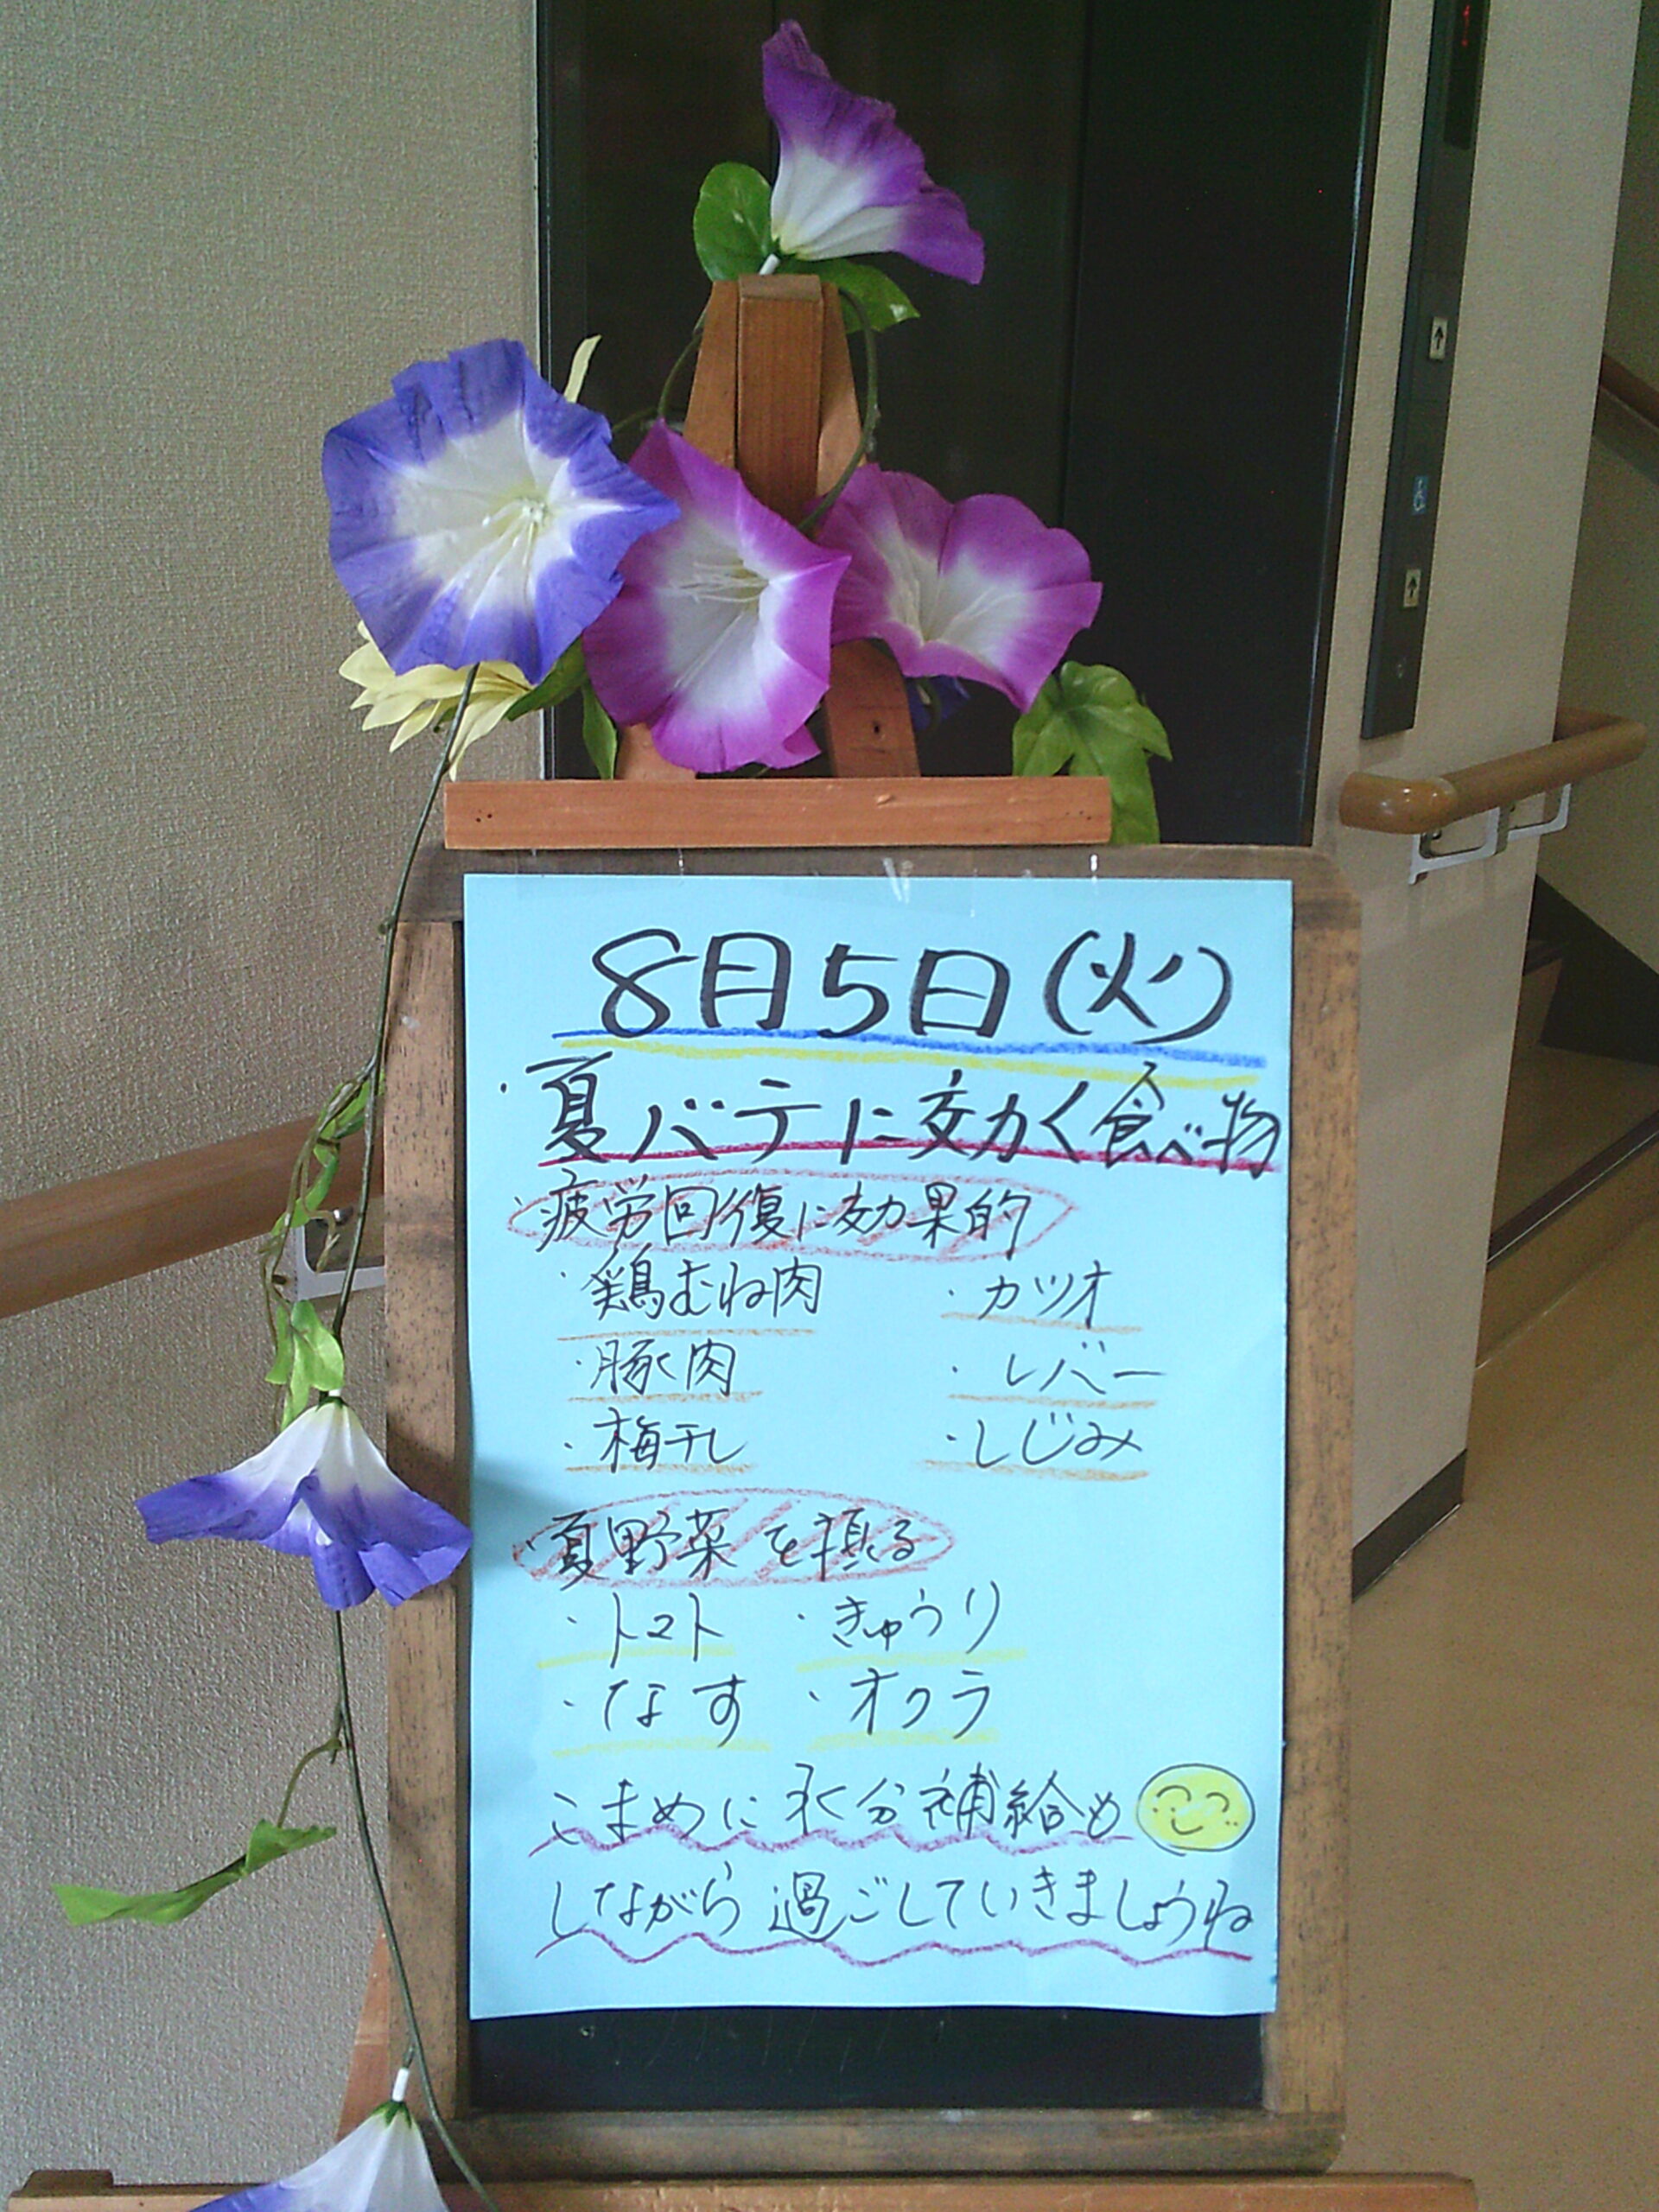 8月5日(火)
・夏バテに効く食べ物
疲労回復に効果的
・鶏むね肉 ・カツオ
・豚肉 ・レバー
・梅干し ・しじみ
夏野菜を摂る
・トマト ・きゅうり
・なす ・オクラ
こまめに水分補給も
しながら過ごしていきましょうね